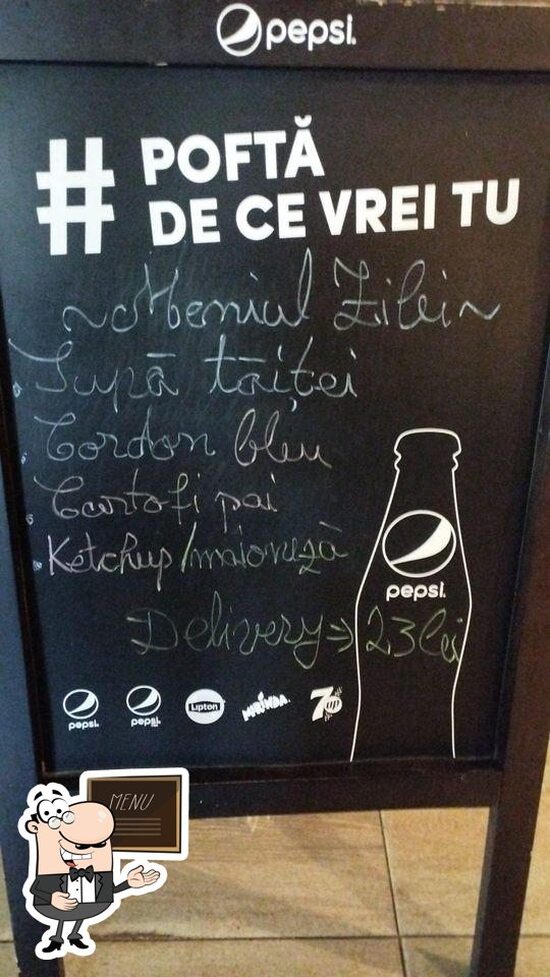 pepsi.
# POFTĂ
DE CE VREI TU
~Meniul Zilei~
Supă tăiței
Cordon bleu
Cartofi pai
Ketchup/maioneză
Delivery⇒23lei
pepsi.
pepsi. pepsi. Lipton MIRINDA. 7up
MENU